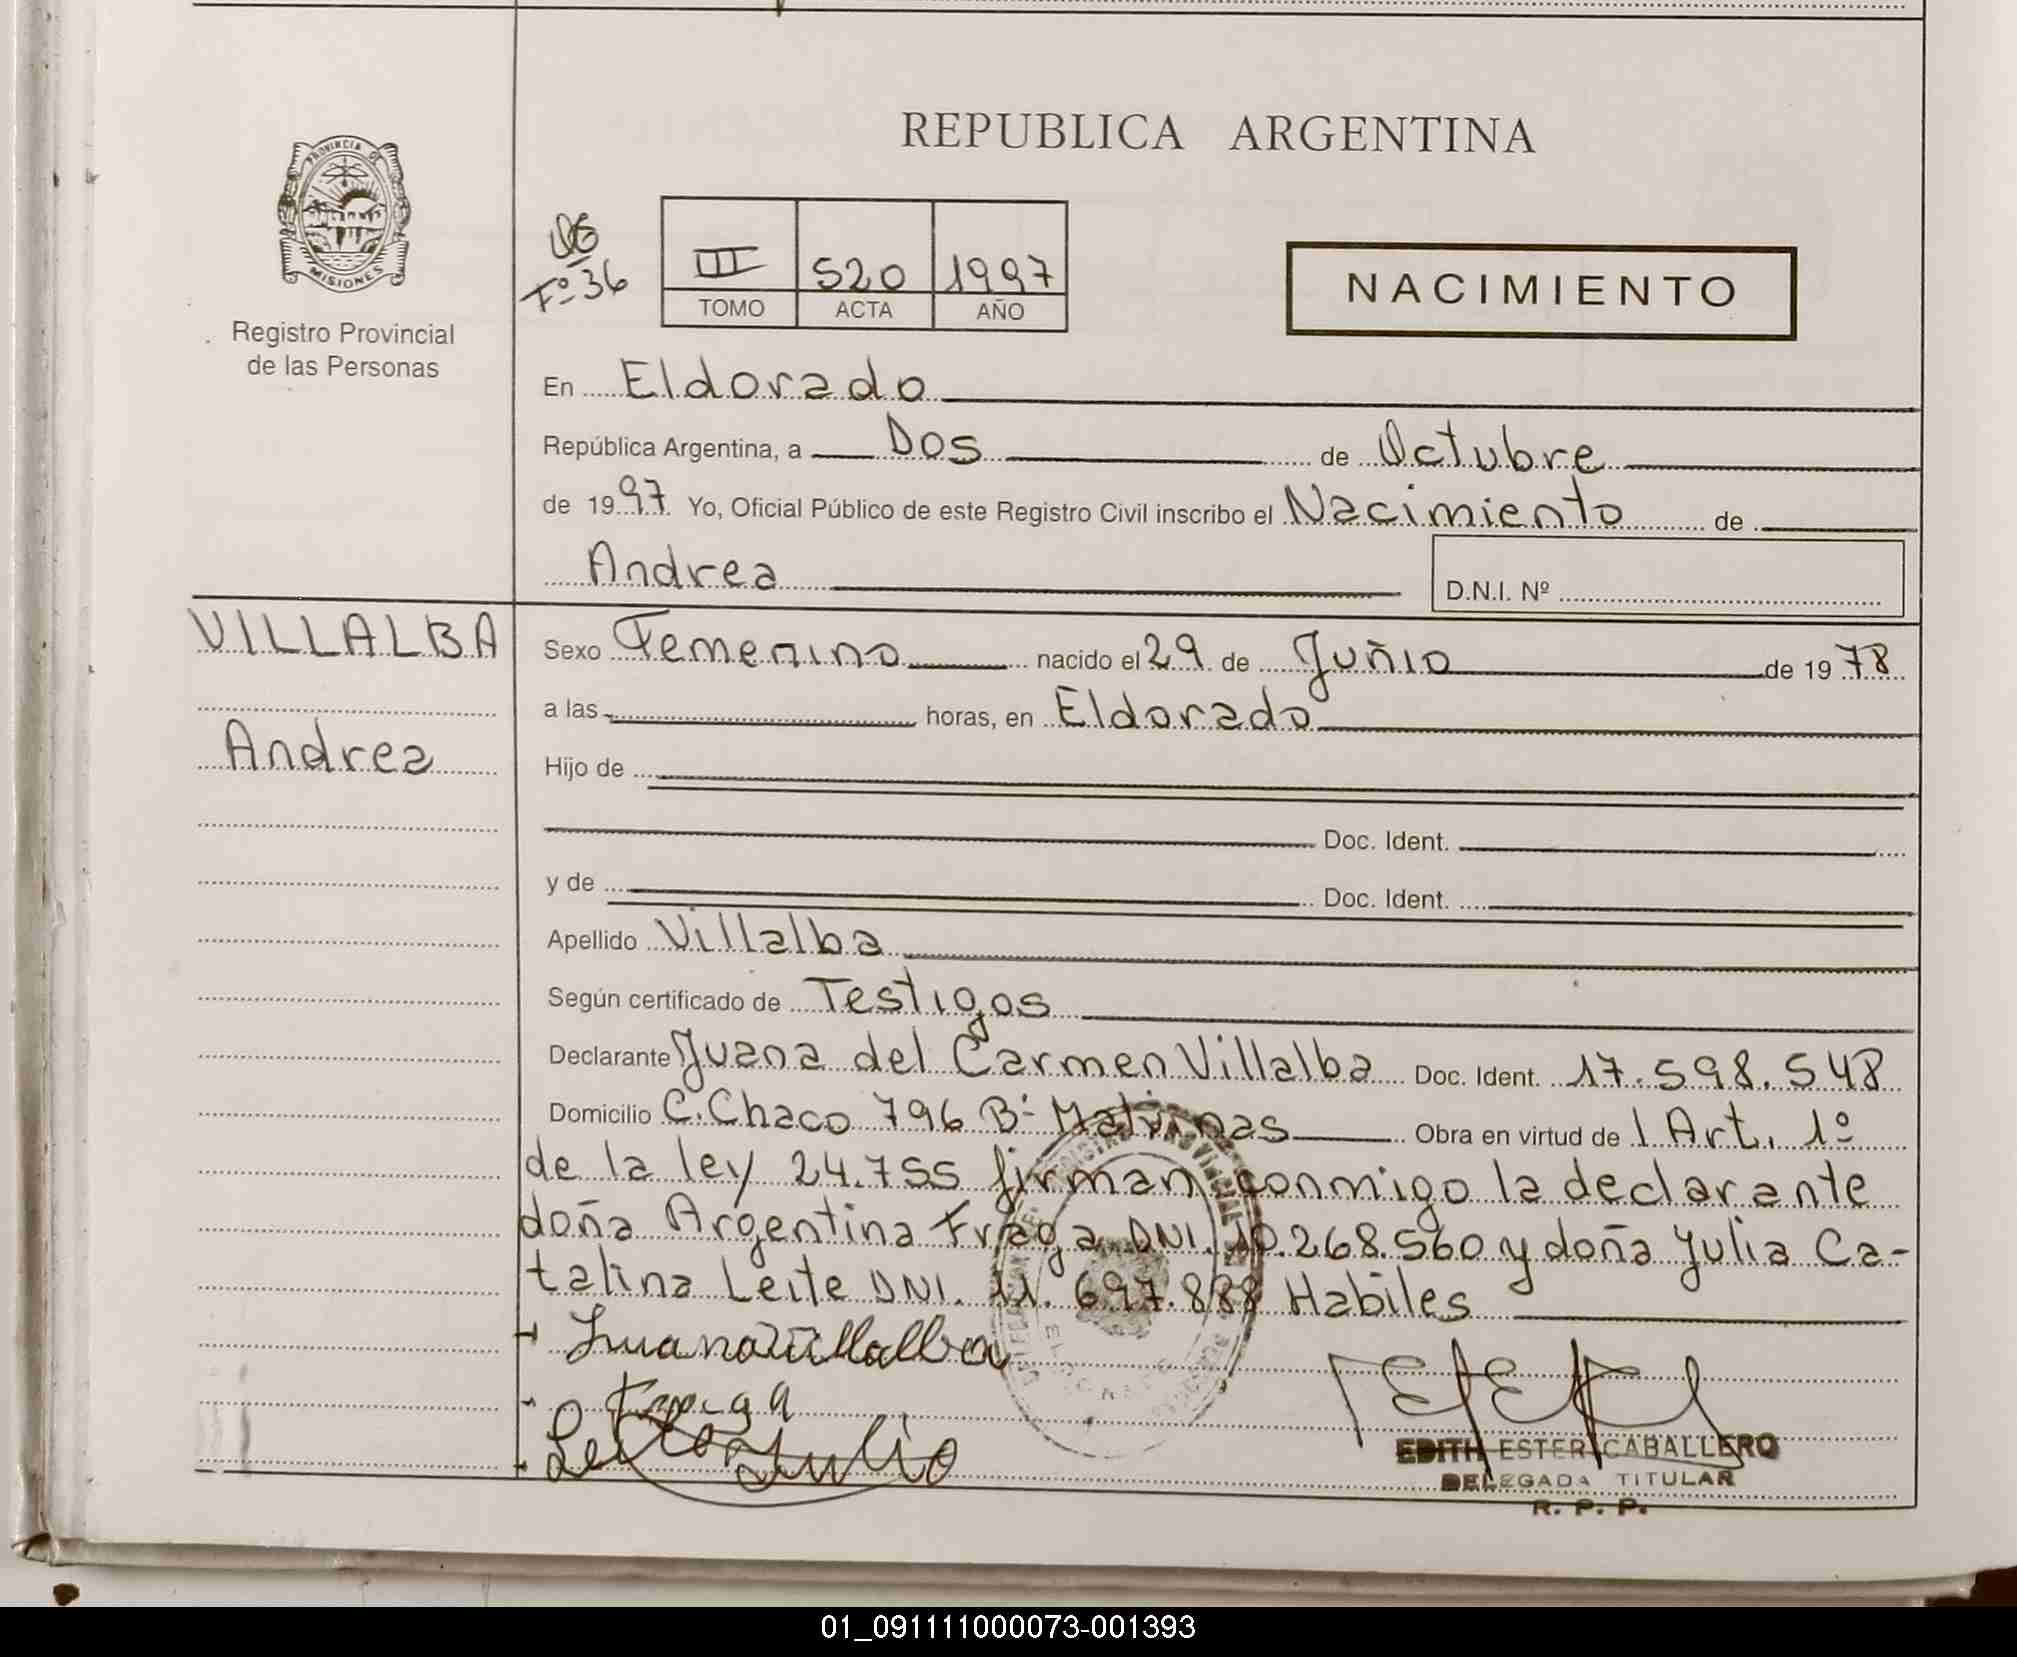 REPUBLICA ARGENTINA
PROVINCIA DE
MISIONES
Registro Provincial
de las Personas
Fº 36
III 520 1997
TOMO ACTA AÑO
NACIMIENTO
En Eldorado
República Argentina, a Dos de Octubre
de 1997 Yo, Oficial Público de este Registro Civil inscribo el Nacimiento de
Andrea D.N.I. Nº
VILLALBA
Andrea
Sexo Femenino nacido el 29 de Juñio de 1978
a las horas, en Eldorado
Hijo de
Doc. Ident.
y de Doc. Ident.
Apellido Villalba
Según certificado de Testigos
Declarante Juana del Carmen Villalba Doc. Ident. 17.598.548
Domicilio C. Chaco 796 Bº Malvinas Obra en virtud de l Art. 1º
de la ley 24.755 firman conmigo la declarante
doña Argentina Fraga DNI. 10.268.560 y doña Julia Ca-
talina Leite DNI. 11.697.888 Habiles
Juana Villalba
Fraga
Leite Julia
EDITH ESTER CABALLERO
DELEGADA TITULAR
R. P. P.
01_091111000073-001393